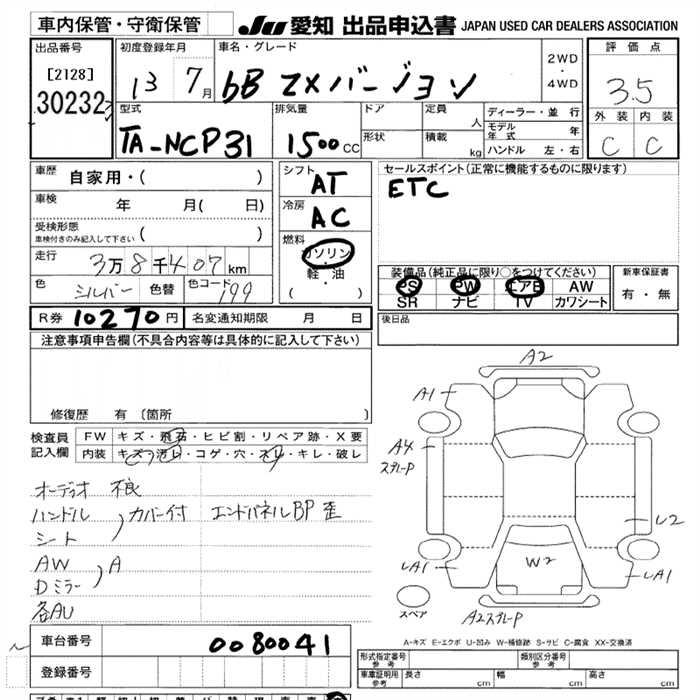 車内保管・守衛保管 JU 愛知 出品申込書 JAPAN USED CAR DEALERS ASSOCIATION
出品番号 初度登録年月 車名・グレード 評価点
[2128]
30232
13 7月 bB ZXバージョン 2WD ・ 4WD 3.5
型式 排気量 ドア 定員 人 ディーラー・並行 外装 内装
TA-NCP31 1500cc 形状 積載 kg モデル年式 年 C C
ハンドル 左・右
車歴 自家用・( ) シフト AT セールスポイント(正常に機能するものに限ります)
車検 年 月( 日) 冷房 AC ETC
受検形態 車検付きのみ記入して下さい ( )
燃料 ガソリン・軽・油 ( )
走行 3万8千407km
装備品(純正品に限り○をつけてください) 新車保証書
色 シルバー 色替 色コード 199 PS PW エアB AW 有・無
SR ナビ TV カワシート
R券 10270円 名変通知期限 月 日 後日品
注意事項申告欄(不具合内容等は具体的に記入して下さい)
修復歴 有 〔箇所 〕
検査員記入欄 FW キズ・飛石・ヒビ割・リペア跡・X要
内装 キズ・汚レ・コゲ・穴・スレ・キレ・破レ
オーディオ 不良
ハンドル シート カバー付 エンドパネルBP歪
AW Dミラー A
各AU
A2
A1
A4 スプレーP
U2
LA1
W2
LA1
スペア
A2スプレーP
A-キズ E-エクボ U-凹み W-補修跡 S-サビ C-腐食 XX-交換済
車台番号 0080041
登録番号
形式指定番号 参考 類別区分番号 参考
車庫証明用 参考 長さ cm 幅 cm 高さ cm